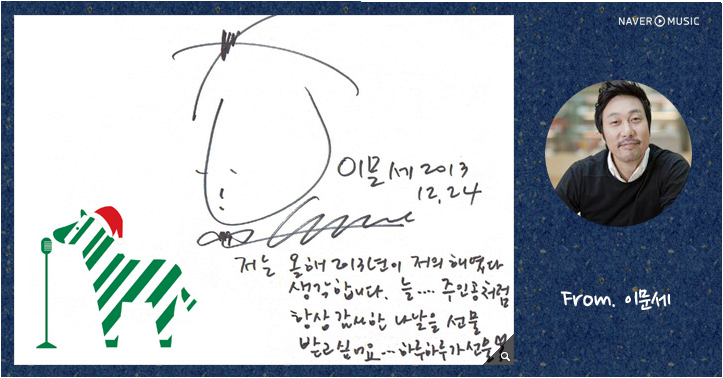 NAVER MUSIC
이문세 2013
12.24
저는 올해 2013년이 저의 해였다
생각합니다. 늘.... 주인공처럼
항상 감사한 나날을 선물
받고싶어요...하루하루가선물
From. 이문세